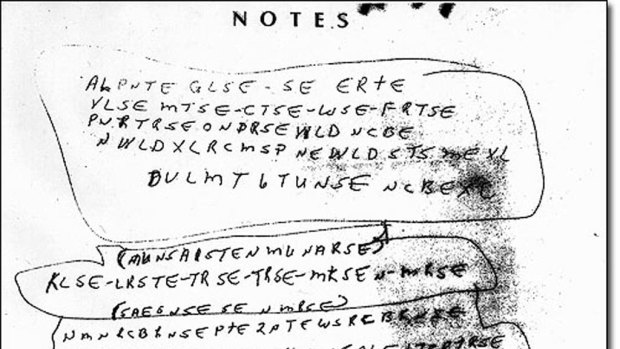 NOTES
ALPNTE GLSE-SE ERTE
VLSE MTSE-CTSE-WSE-FRTSE
PNRTRSEONDRSEWLD NCBE
NWLDXLRCMSP NEWLDSTSMEXL
DULMT6TUNSE NCBEXE
(MUNSAISTENMUNARSE)
KLSE-LRSTE-TRSE-TRSE-MKSEN-MRSE
(SAEGNSESE NMRSE)
NMNRCBRNSEPTE2PTEWSRCBRNSE